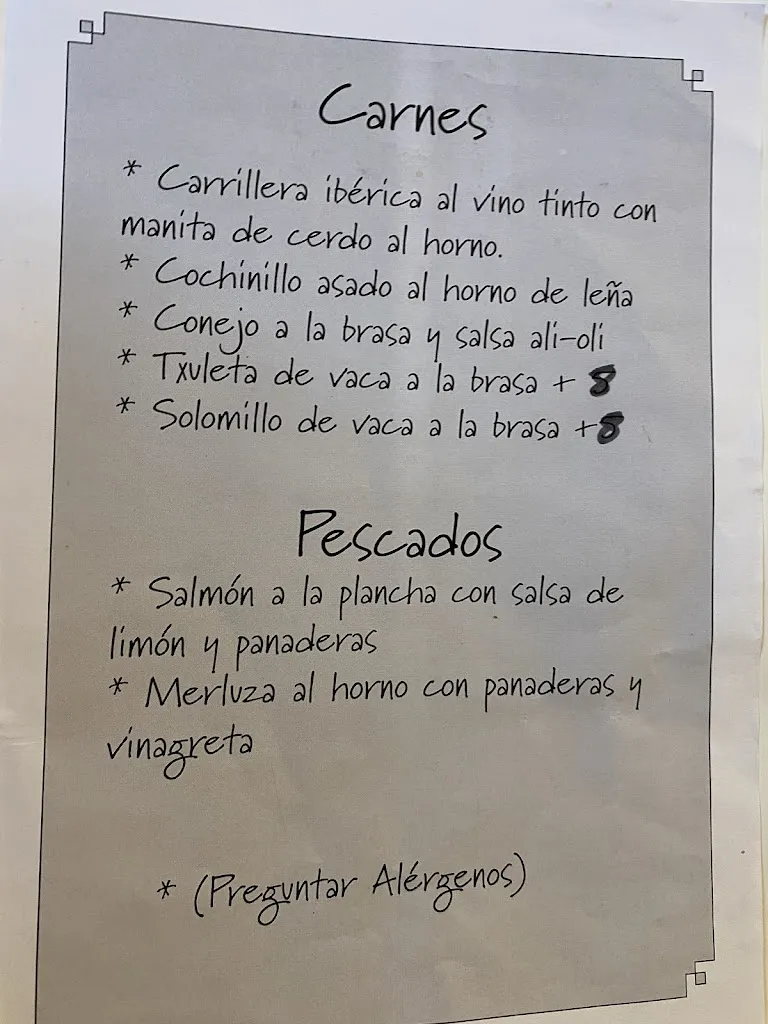 Carnes
* Carrillera ibérica al vino tinto con
manita de cerdo al horno.
* Cochinillo asado al horno de leña
* Conejo a la brasa y salsa ali-oli
* Txuleta de vaca a la brasa + 8
* Solomillo de vaca a la brasa +8
Pescados
* Salmón a la plancha con salsa de
limón y panaderas
* Merluza al horno con panaderas y
vinagreta
* (Preguntar Alérgenos)